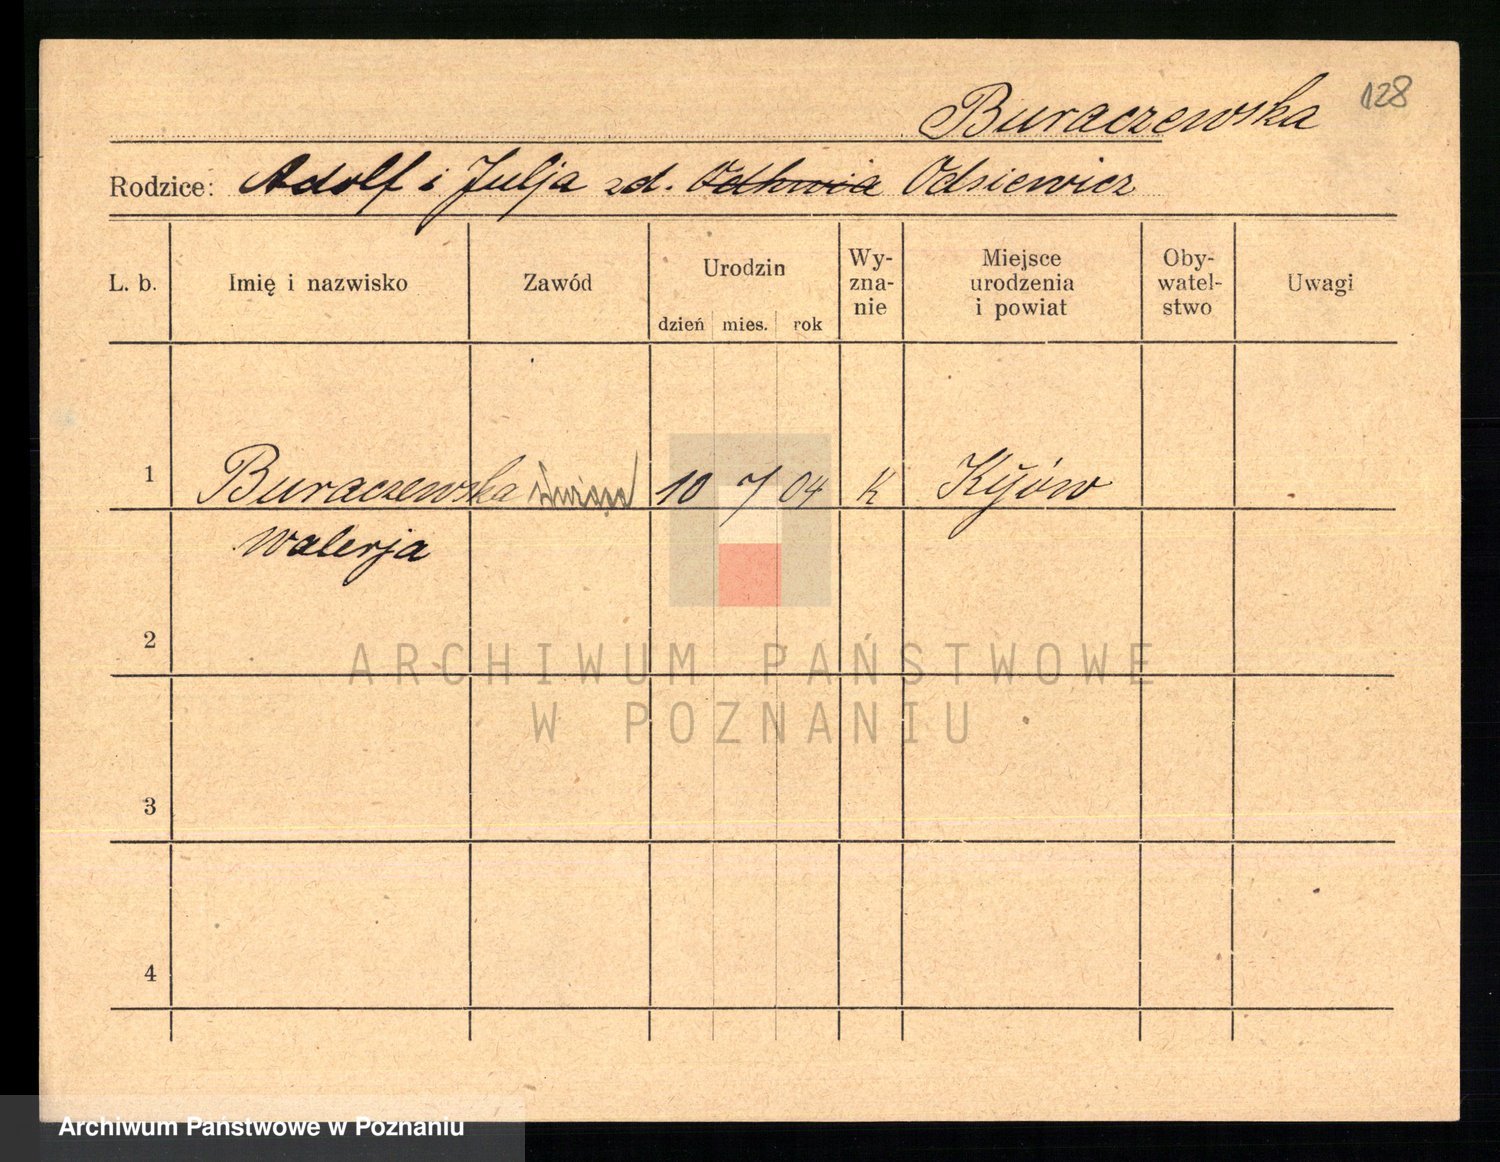 Buraczewska 128
Rodzice: Adolf i Julja zd. Odsiewicz
L. b. Imię i nazwisko Zawód Urodzin dzień mies. rok Wy-zna-nie Miejsce urodzenia i powiat Oby-watel-stwo Uwagi
1 Buraczewska 10 7 04 K Kijów
Walerja
2
ARCHIWUM PAŃSTWOWE
W POZNANIU
3
4
Archiwum Państwowe w Poznaniu